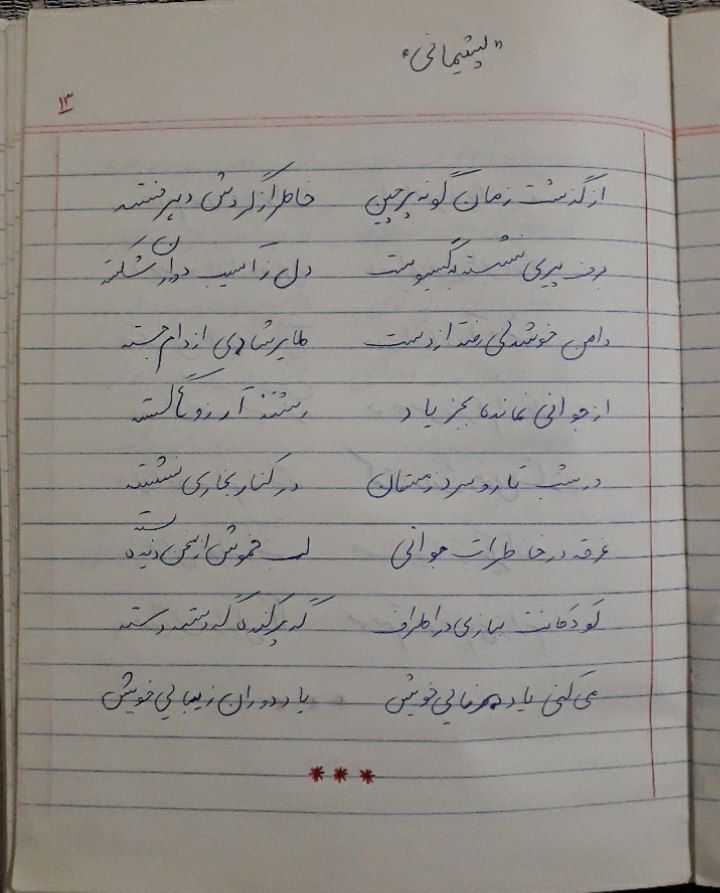 "پشیمانی"
۱۳
از گذشت زمان گونه پرچین خاطر از گردش دهر خسته
برف پیری نشسته به گیسویت دل ز آسیب دوران شکسته
دامن خوشدلی رفته از دست طایر شادی از دام جسته
از جوانی نمانده بجز یاد رشته آرزوها گسسته
در شب تار و سرد زمستان در کنار بخاری نشسته
غرقه در خاطرات جوانی لب خموش از سخن دیده بسته
کودکانت ببازی در اطراف گه پراکنده گه دسته دسته
می کنی یاد رعنایی خویش یاد دوران زیبایی خویش
***